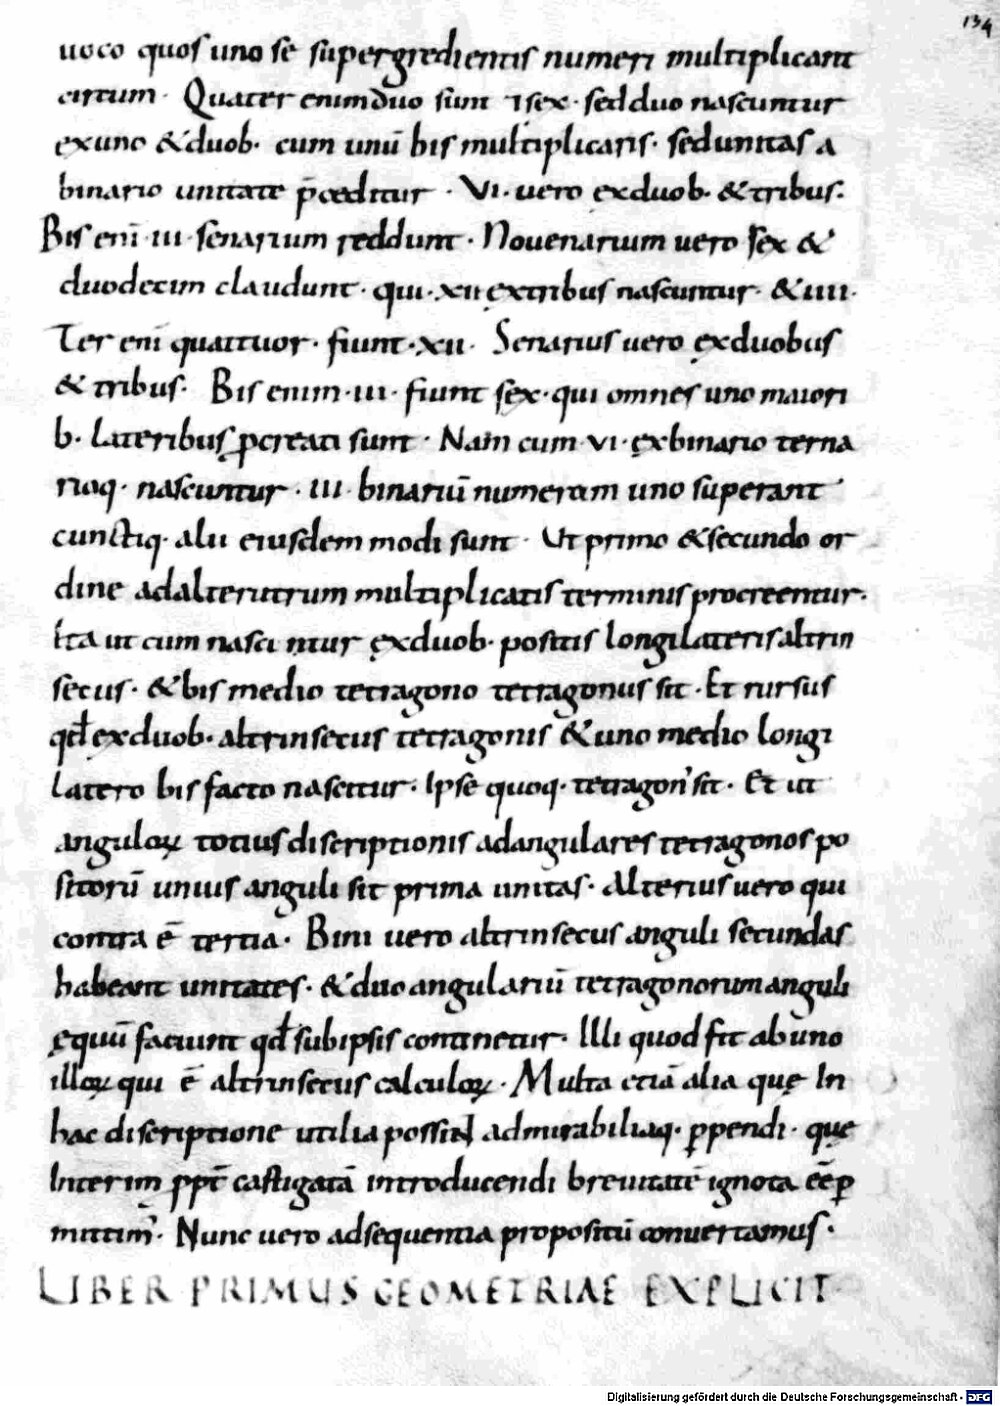 134
uoco quos uno se supergredientis numeri multiplicant
cirtum · Quater enim duo sunt ⁊ sex · sed duo nascuntur
ex uno & duob · cum unū bis multiplicaris · sed unitas a
binario unitate p̄ceditur · VI · uero ex duob · & tribus ·
Bis enī · III · senarium reddunt · Nouenarium uero sex &
duodecim claudunt · qui · XII ex tribus nascuntur · & IIII ·
Ter enī quattuor · fiunt · XII · Senarius uero ex duobus
& tribus · Bis enim · III · fiunt sex · qui omnes uno maiori
b · lateribus ꝓcreati sunt · Nam cum · VI · ex binario terna
rioq · nascuntur · III · binariū numerum uno superant
cunctiq · alii eiusdem modi sunt · Ut primo & secundo or
dine ad alterutrum multiplicatis terminis procreentur ·
Ita ut cum nascuntur ex duob · positis longilateris altrin
secus · & bis medio tetragono tetragonus sit · Et rursus
qđ ex duob · altrinsecus tetragonis & uno medio longi
latero bis facto nascitur · Ipse quoq · tetragon' sit · Et ut
anguloꝝ totius discriptionis ad angulares tetragonos po
sitorū unius anguli sit prima unitas · Alterius uero qui
contra ē tertia · Bini uero altrinsecus anguli secundas
habeant unitates · & duo angulariū tetragonorum anguli
ęquū faciunt qđ sub ipsis continetur · Illi quod fit ab uno
illoꝝ qui ē altrinsecus calculoꝝ · Multa etiā alia quę In
hac discriptione utilia possint admirabiliaq · ꝑpendi · quę
Interim ꝓpt̄ castigatā introducendi breuitatē ignota eē ꝑ
mittim' · Nunc uero ad sequentia propositū conuertamus ·
LIBER PRIMUS GEOMETRIAE EXPLICIT
Digitalisierung gefördert durch die Deutsche Forschungsgemeinschaft - DFG